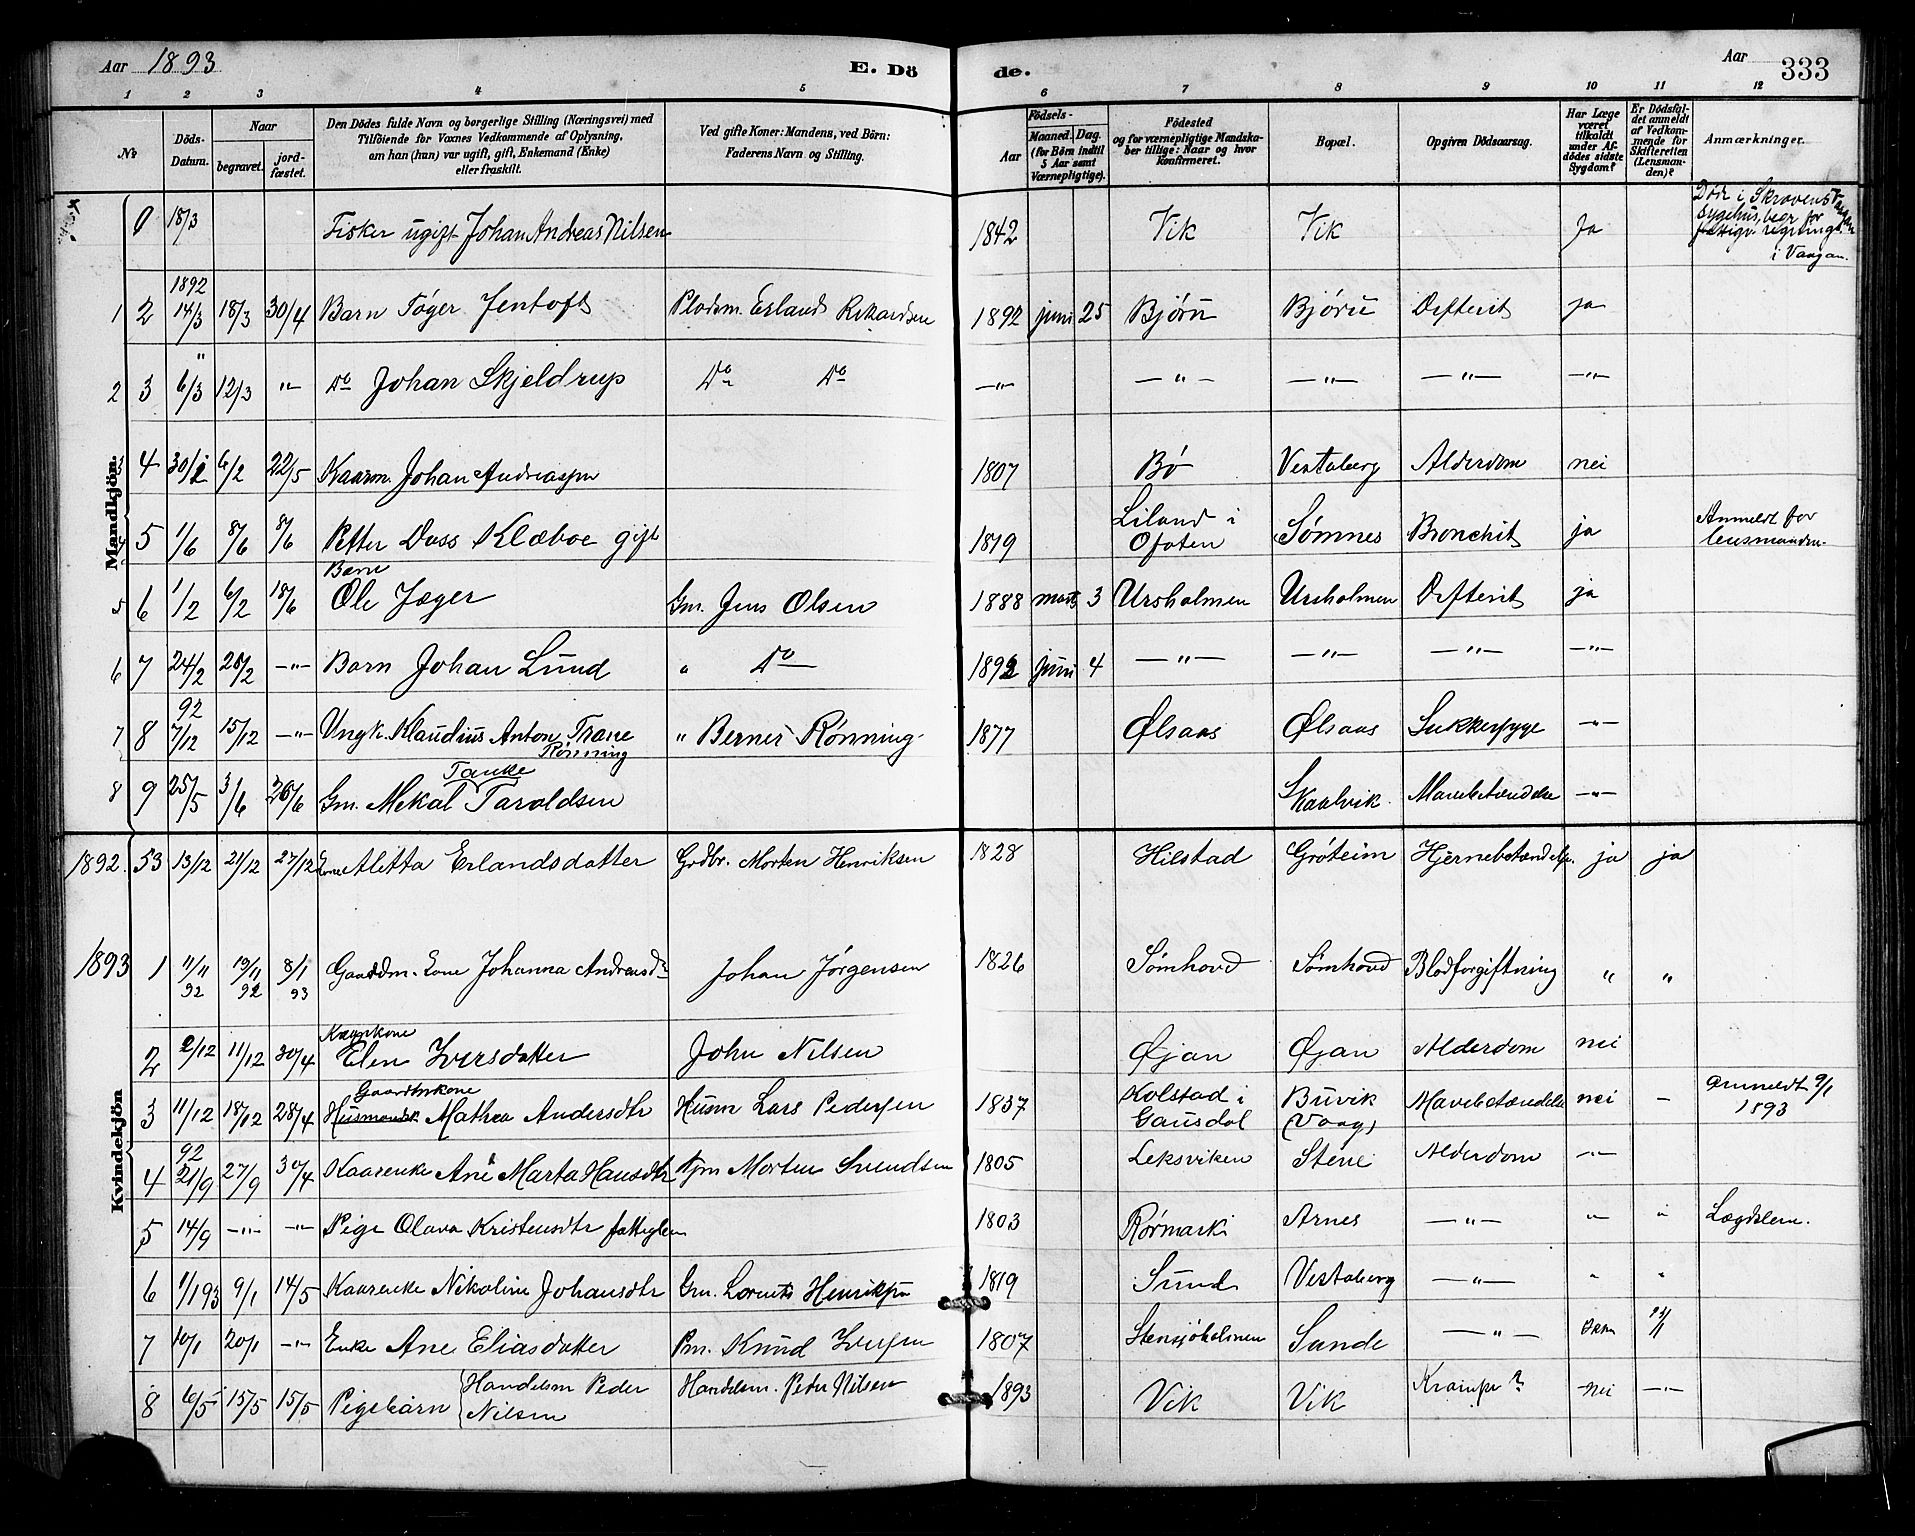 Aar 1893
E. Dö
de.
Aar
333
1 2 3 4 5 6 7 8 9 10 11 12
№
Döds-Datum.
Naar
begravet.
jord-fæstet.
Den Dödes fulde Navn og borgerlige Stilling (Næringsvei) med
Tilföiende for Voxnes Vedkommende af Oplysning,
om han (hun) var ugift, gift, Enkemand (Enke)
eller fraskilt.
Ved gifte Koner: Mandens, ved Börn:
Faderens Navn og Stilling.
Födsels-
Aar
Maaned. Dag.
(for Börn indtil
5 Aar samt
Værnepligtige).
Födested
og for værnepligtige Mandska-
ber tillige: Naar og hvor
konfirmeret.
Bopæl.
Opgiven Dödsaarsag.
Har Læge
været
tilkaldt
under Af-
dödes sidste
Sygdom?
Er Dödsfal-
det anmeldt
af Vedkom-
mende for
Skifteretten
(Lensman-
den)?
Anmærkninger.
Mandkjön.
18/3 Fisker ugift Johan Andreas Nilsen 1842 Vik Vik Ja Död i Skrovens
sygehus, begr for
i Vaagan.
1892
1 2 14/3 18/3 30/4 Barn Töger Jentoft Pladsm. Erlands Rikardsen 1892 juni 25 Bjørn Bjørn Difterit ja
"
2 3 6/3 12/3 -"- Do Johan Skjeldrup Do Do -"- -"- -"- -"- -"-
4 30/12 6/2 22/5 Kaarm. Johan Andreassen 1807 Bø Vestaberg Alderdom nei
5 1/6 8/6 8/6 Petter Dass Klæboe gift 1819 Liland i
Ofoten Sømnes Bronchit ja Anmeldt for
lensmanden
Barn
5 6 1/2 6/2 18/6 Ole Jæger Gm. Jens Olsen 1888 marts 3 Ursholmen Ursholmen Difterit ja
6 7 24/2 28/2 -"- Barn Johan Lund " Do 1892 juni 4 -"- -"- -"- -"-
92
7 8 7/12 15/12 -"- Ungk. Klaudius Anton Trane
Rønning " Berner Rønning 1877 Ølsaas Ølsaas Sukkersyge -"-
Tanke
8 9 25/5 3/6 26/6 Gm. Mekal Taraldsen Skaalvik Mavebetændelse -"-
1892. 53 13/12 21/12 27/12 Alitta Erlandsdatter Grdbr. Morten Henriksen 1828 Hilstad Grøteim Hjernebetændelse ja ja
Kvindekjön
1893 1 11/11 92 19/11 92 8/1 93 Gaardm. Kone Johanna Andreasdr Johan Jørgensen 1826 Sømhovd Sømhovd Blodforgiftning " "
2 2/12 11/12 30/4 Elen Iversdatter John Nilsen Øjan Øjan Alderdom nei
Gaardbrkone
3 11/12 18/12 28/4 Husmandsk Mathea Andersdtr Husm Lars Pedersen 1837 Kolstad i
Gausdal Buvik
(Vaag) Mavebetændelse nei - Anmeldt 9/1
1893
92
4 21/9 27/9 30/4 Kaarenke Ane Marta Hansdtr Gm Morten Svendsen 1805 Leksviken Stene Alderdom -"-
5 14/9 -"- -"- Pige Olava Kristensdtr fattiglem 1803 Rørmark Arnes -"- -"- " Lægdslem.
6 1/1 93 9/1 14/5 Kaarenke Nikoline Johansdtr Gm. Lorents Henriksen 1819 Sund Vestaberg -"- " "
7 10/1 20/1 -"- Enke Ane Eliasdatter Pm. Knud Iversen 1807 Stensjøholmen Sande -"-
8 6/5 15/5 15/5 Pigebarn Handelsm Peder
Nilsen Handelsm. Peder Nilsen 1893 Vik Vik Krampe? nei -"-